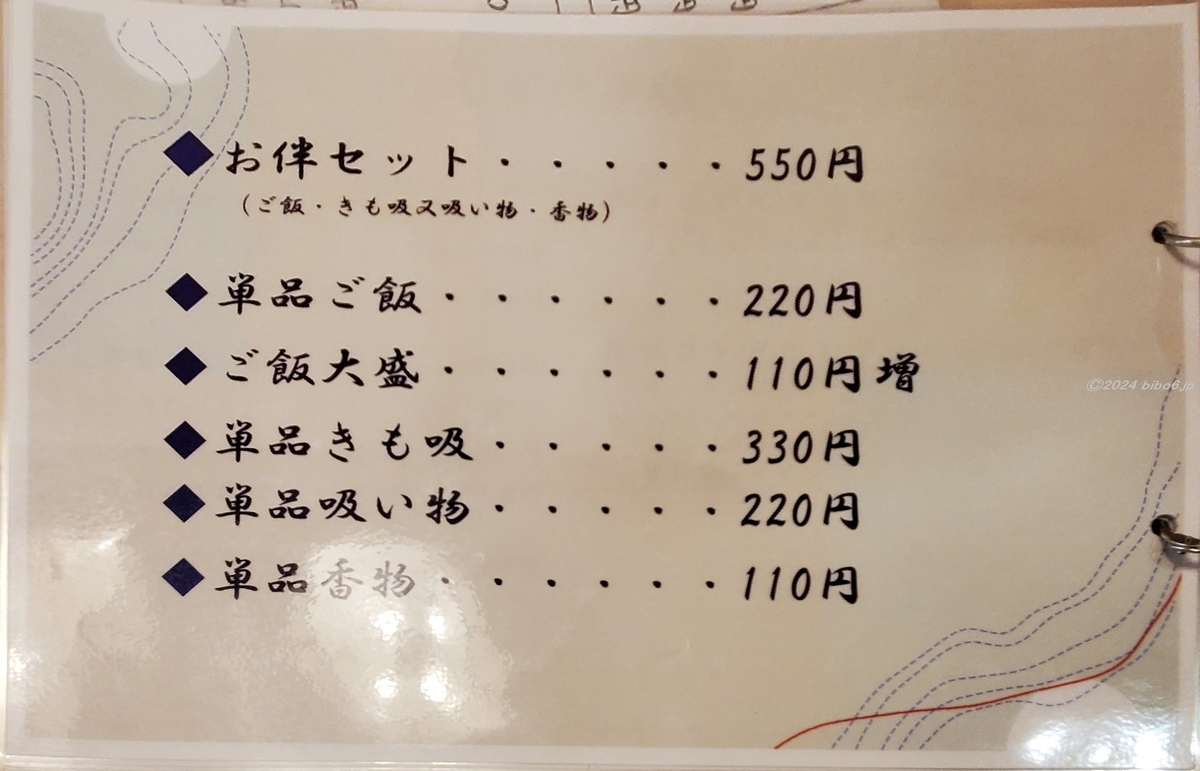 ◆お伴セット・・・・・550円
(ご飯・きも吸又吸い物・香物)
◆単品ご飯・・・・・・220円
◆ご飯大盛・・・・・・110円増
◆単品きも吸・・・・・330円
◆単品吸い物・・・・・220円
◆単品香物・・・・・・110円
©2024 bibo6.jp